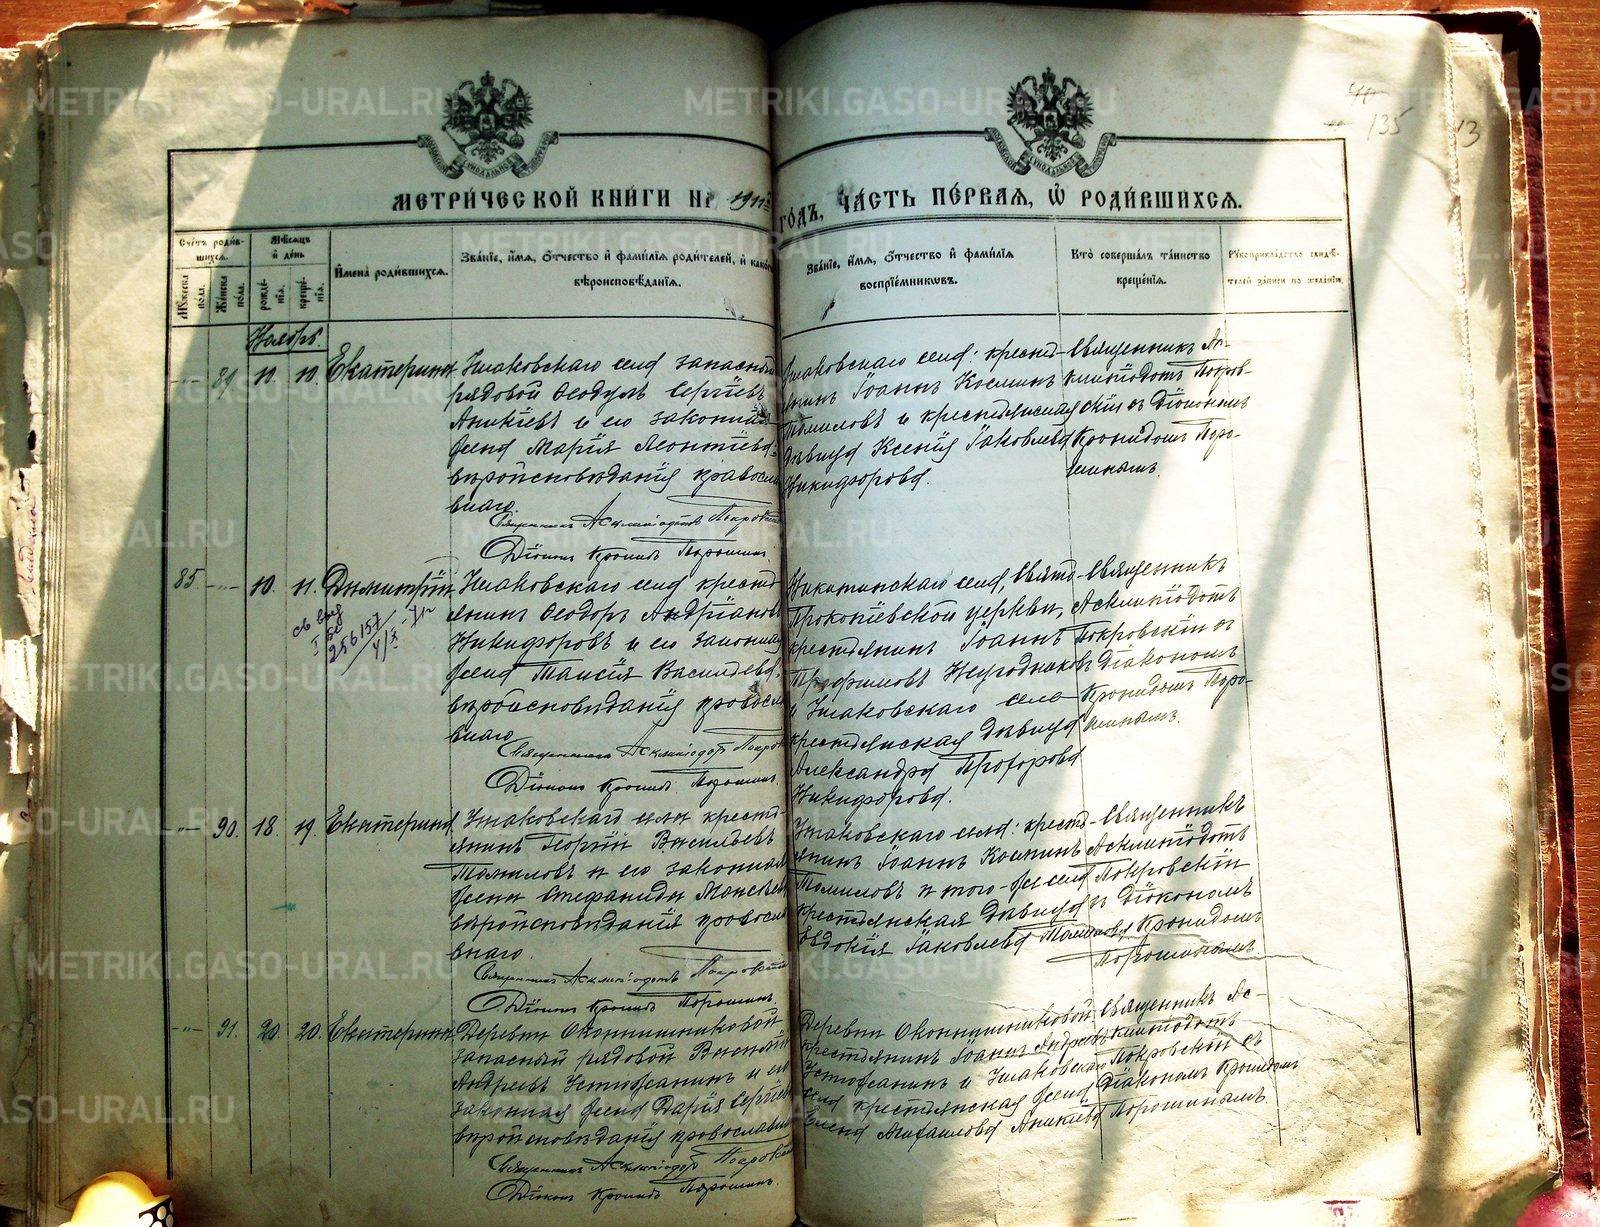 40
135
13
МЕТРИ́ЧЕСКОЙ КНИ́ГИ НА 1911й
ГО́ДЪ, ЧА́СТЬ ПЕ́РВАЯ, Ѡ҆ РОДИ́ВШИХСѦ.
Сче́тъ роди́в-
шихся.
Мѣ́сяцъ
и҆ де́нь
Мꙋ́жеска по́ла.
Же́нска по́ла.
рожде́-
нїя.
креще́-
нїя.
И҆мена̀ роди́вшихся.
Зва́нїе, и҆́мя, ѻ҆́тчество и҆ фами́лїя роди́телей, и҆ како́гѡ
вѣроисповѣ́данїя.
Зва́нїе, и҆́мя, ѻ҆́тчество и҆ фами́лїя
воспрїе́мникѡвъ.
Кто̀ соверша́лъ та́инство
креще́нїя.
Рꙋкоприкла́дство свидѣ́-
телей за́писи по жела́нїю.
Ноябрь.
89 10. 10. Екатерина
Ушаковскаго села запасный
рядовой Ѳеодулъ Сергіевъ
Аникіевъ и его законная
жена Марія Леонтіева
вѣроисповѣданія православ-
наго.
Священникъ Асклипіодотъ Покровскій
Діаконъ Кронидъ Порошинъ.
Ушаковскаго села: крестья-
нинъ Іоаннъ Косминъ
Томиловъ и крестьянская
дѣвица Ксенія Іаковлева
Никифорова.
Священникъ Ас-
клипіодотъ Покров-
скій съ Діакономъ
Кронидомъ Поро-
шинымъ.
85 10. 11. Димитрій
256157
Ушаковскаго села крестья-
нинъ Ѳеодоръ Андріановъ
Никифоровъ и его законная
жена Таисія Васильева,
вѣроисповѣданія православ-
наго.
Священникъ Асклипіодотъ Покровскій
Діаконъ Кронидъ Порошинъ.
Никитинскаго села, Свято-
Прокопіевской церкви,
крестьянинъ Іоаннъ
Трофимовъ Неугодниковъ
и Ушаковскаго села
крестьянская дѣвица
Александра Прохорова
Никифорова.
Священникъ
Асклипіодотъ
Покровскій съ
Діакономъ
Кронидомъ Поро-
шинымъ.
90. 18. 19. Екатерина
Ушаковскаго села крестья-
янинъ Георгій Васильевъ
Томиловъ и его законная
жена Стефанида
вѣроисповѣданія православ-
наго.
Священникъ Асклипіодотъ Покровскій
Діаконъ Кронидъ Порошинъ.
Ушаковскаго села: крестья-
нинъ Іоаннъ Косминъ
Томиловъ и того-же села
крестьянская дѣвица
Евдокія Іаковлева Томилова
Священникъ
Асклипіодотъ
Покровскій
съ Діакономъ
Кронидомъ
Порошинымъ.
91. 20. 20. Екатерина
Деревни Оконишниковой
запасный рядовой Василій
Андреевъ Устюжанинъ и его
законная жена Дарія Сергіева
вѣроисповѣданія православнаго
Священникъ Асклипіодотъ Покровскій
Діаконъ Кронидъ Порошинъ.
Деревни Оконишниковой
крестьянинъ Іоаннъ Андреевъ
Устюжанинъ и Ушаковскаго
села крестьянская жена
Елена Михаилова Аникіева
Священникъ Ас-
клипіодотъ
Покровскій съ
Діакономъ Кронидомъ
Порошинымъ.
METRIKI.GASO-URAL.RU